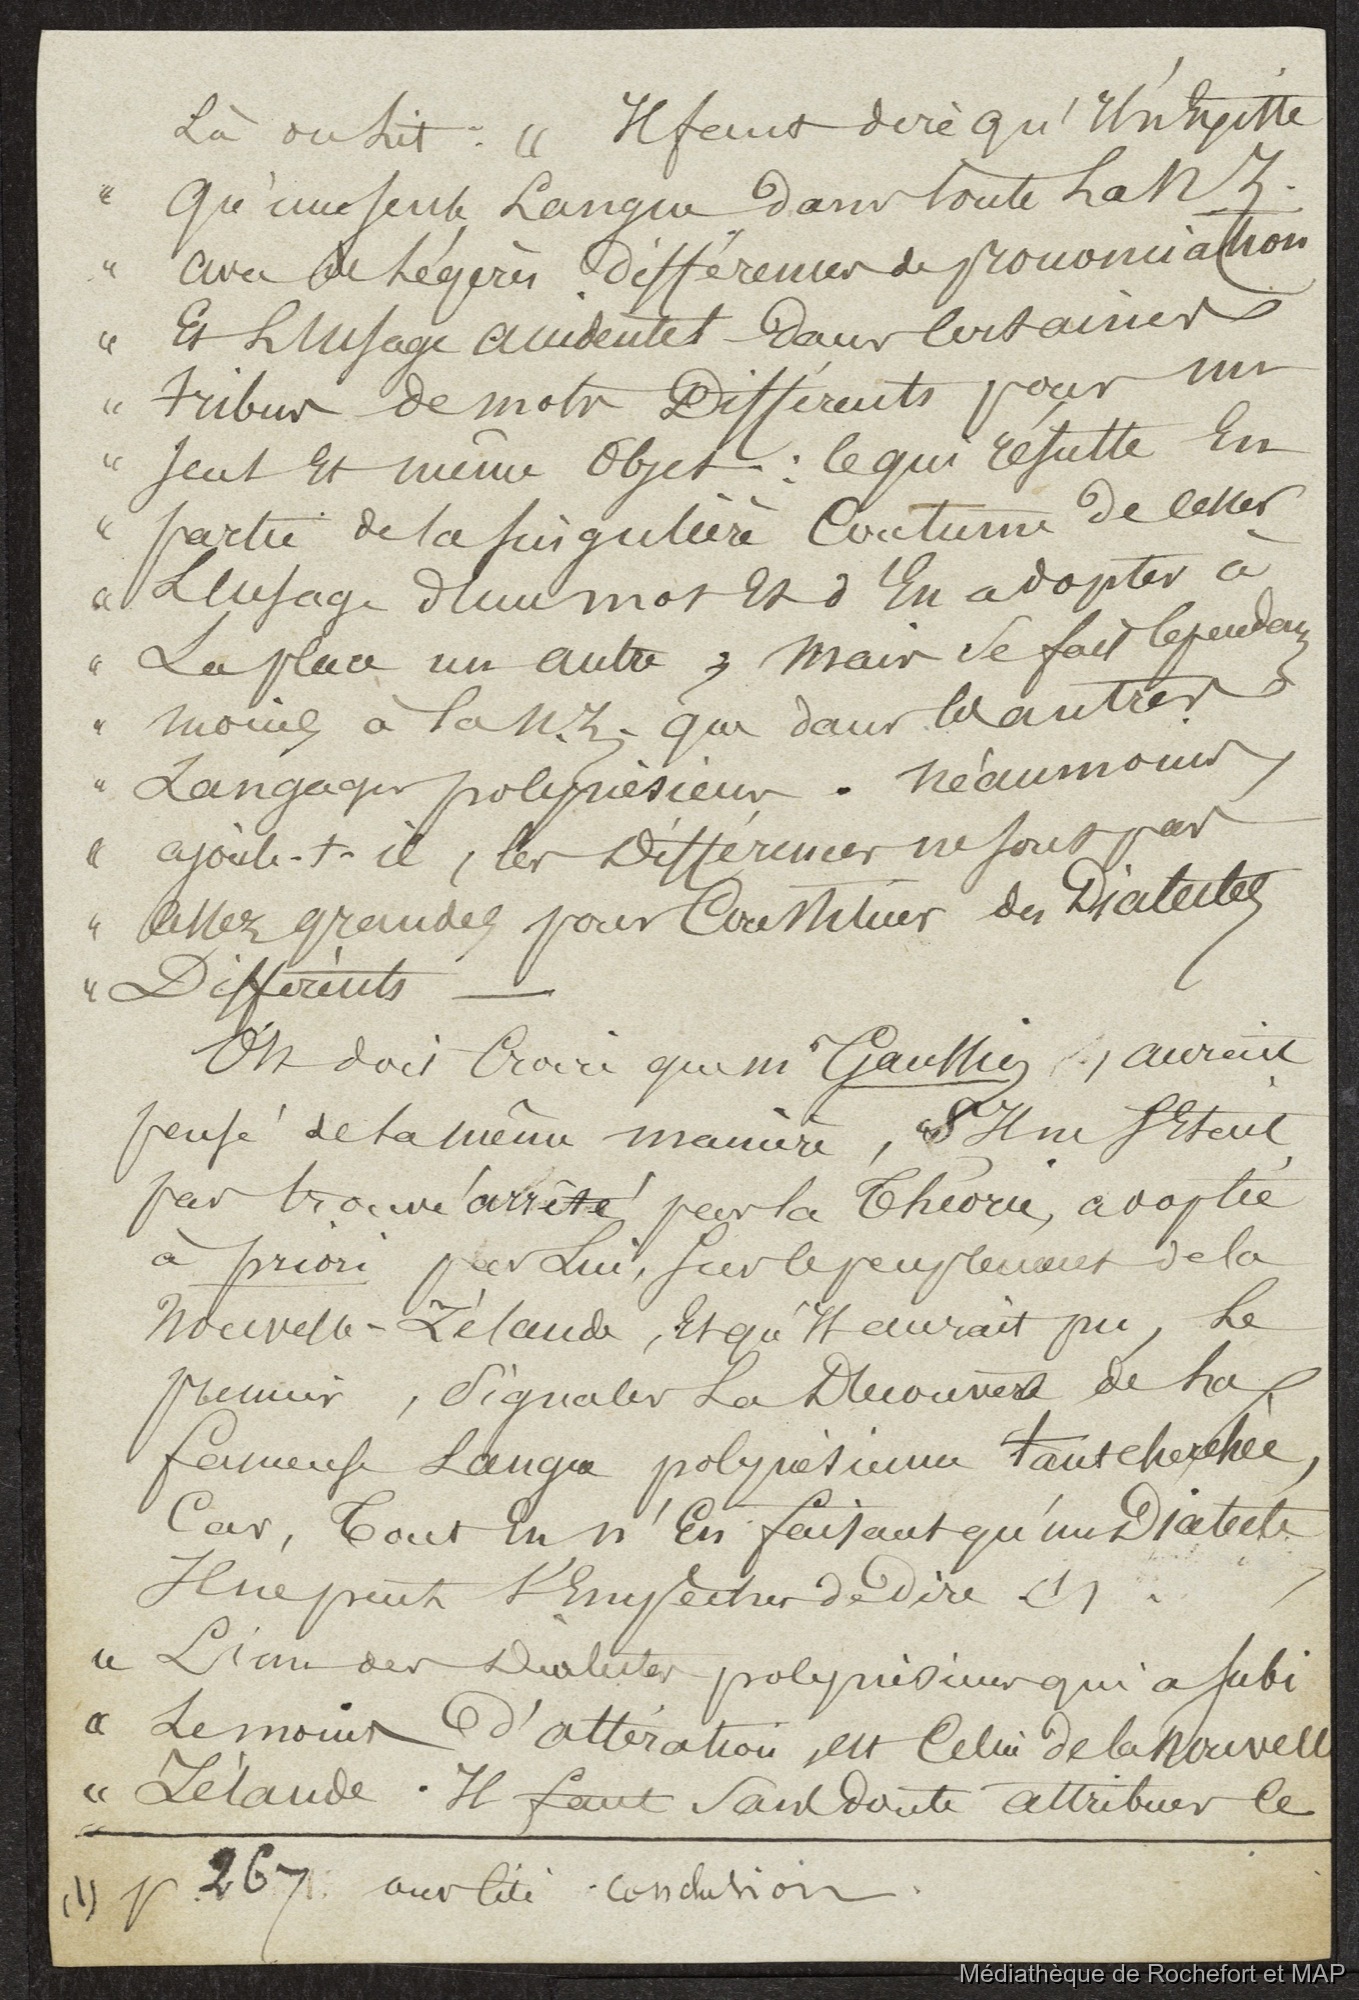 Là on lit : " Il faut dire qu'Il n'Existe
" Qu'une seule Langue dans toute La N Z.
" avec de légères différences de prononciation
" Et L'Usage accidentel dans Certaines
" tribus de mots Différents pour un
" seul Et même Objet : Ce qui résulte En
" partie de la singulière Coutume De cesser
" L'Usage d'un mot Et d'En adopter à
" La place un autre ; Mais Ce fait Cependant
" moins à la N.Z. que dans les autres
" Langages polynésiens . Néanmoins,
" ajoute-t-il, les Différences ne sont pas
" assez grandes pour Constituer des Dialectes
" Différents —
On doit Croire que Mr Gaussin (1) aurait
pensé de la même manière, S'Il ne s'Etait
pas trouvé arrêté par la Théorie, adoptée
à priori par Lui, sur le peuplement de la
Nouvelle-Zélande, Et qu'Il aurait pu, Le
premier, Signaler La Découverte de La
fameuse Langue polynésienne tant cherchée,
Car, Tout En n'En faisant qu'un Dialecte
Il ne peut S'Empêcher de Dire (1) .
" L'un des Dialectes polynésiens qui a subi
" Le moins D'altération, est Celui de la Nouvelle
" Zélande . Il faut Sans doute attribuer Ce
(1) p 267 conclusion.